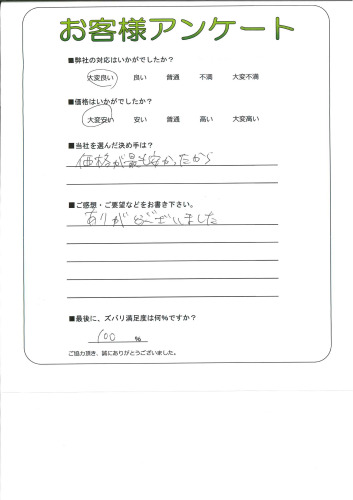 お客様アンケート
■弊社の対応はいかがでしたか?
大変良い 良い 普通 不満 大変不満
■価格はいかがでしたか?
大変安い 安い 普通 高い 大変高い
■当社を選んだ決め手は?
価格が最も安かったから
■ご感想・ご要望などをお書き下さい。
ありがとうございました
■最後に、ズバリ満足度は何%ですか?
100 %
ご協力頂き、誠にありがとうございました。